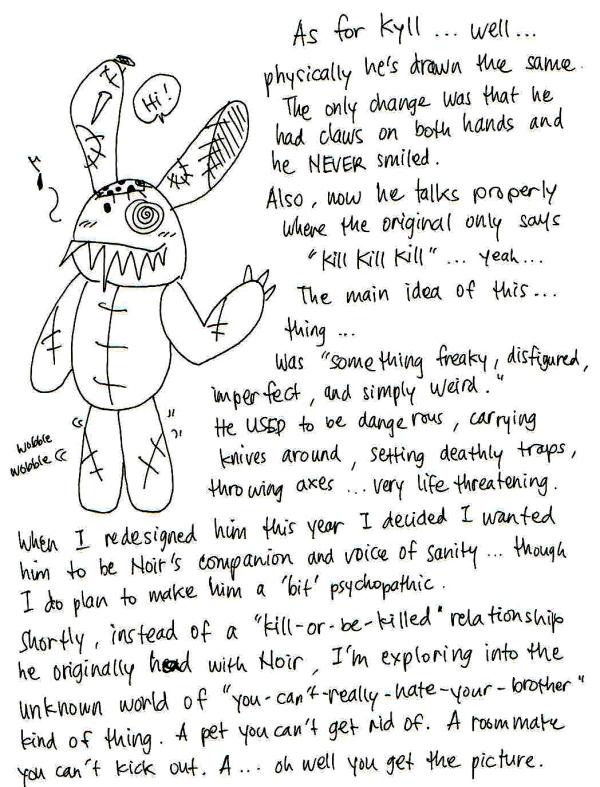 As for Kyll ... well...
physically he's drawn the same.
The only change was that he
had claws on both hands and
he NEVER smiled.
Also, now he talks properly
where the original only says
"kill kill kill" ... yeah...
The main idea of this...
thing ...
was "something freaky, disfigured,
imperfect, and simply weird."
He USED to be dangerous, carrying
knives around, setting deathly traps,
throwing axes ... very life threatening.
When I redesigned him this year I decided I wanted
him to be Noir's companion and voice of sanity ... though
I do plan to make him a 'bit' psychopathic.
Shortly, instead of a "kill-or-be-killed" relationship
he originally had with Noir, I'm exploring into the
unknown world of "you-can't-really-hate-your-brother"
kind of thing. A pet you can't get rid of. A roommate
you can't kick out. A ... oh well you get the picture.
Hi!
wobble
wobble